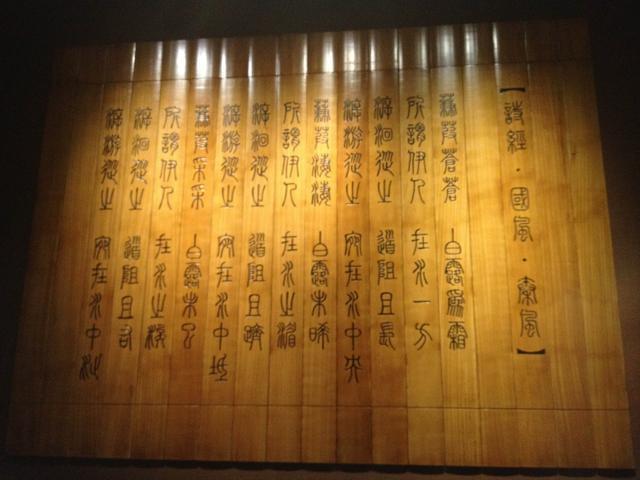 【詩經·國風·秦風】
蒹葭蒼蒼 白露為霜
所謂伊人 在水一方
溯洄從之 道阻且長
溯游從之 宛在水中央
蒹葭淒淒 白露未晞
所謂伊人 在水之湄
溯洄從之 道阻且躋
溯游從之 宛在水中坻
蒹葭采采 白露未已
所謂伊人 在水之涘
溯洄從之 道阻且右
溯游從之 宛在水中沚